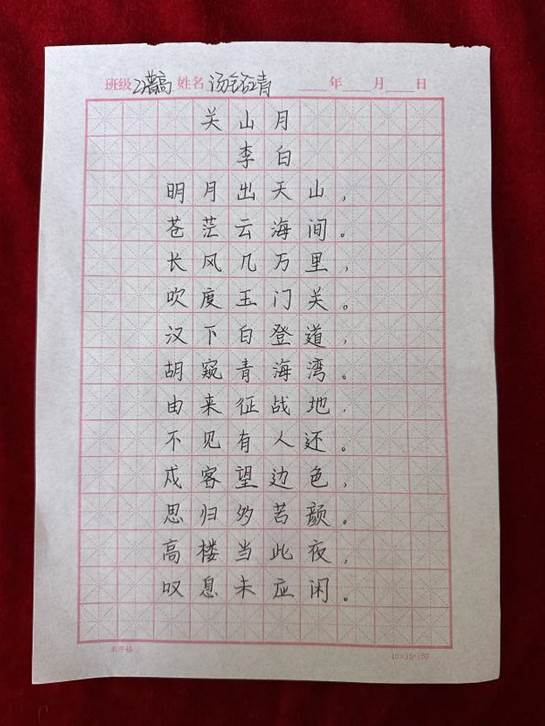 班级 姓名 汤 青 年 月 日
关山月
李白
明月出天山，
苍茫云海间。
长风几万里，
吹度玉门关。
汉下白登道，
胡窥青海湾。
由来征战地，
不见有人还。
戍客望边色，
思归多苦颜。
高楼当此夜，
叹息未应闲。